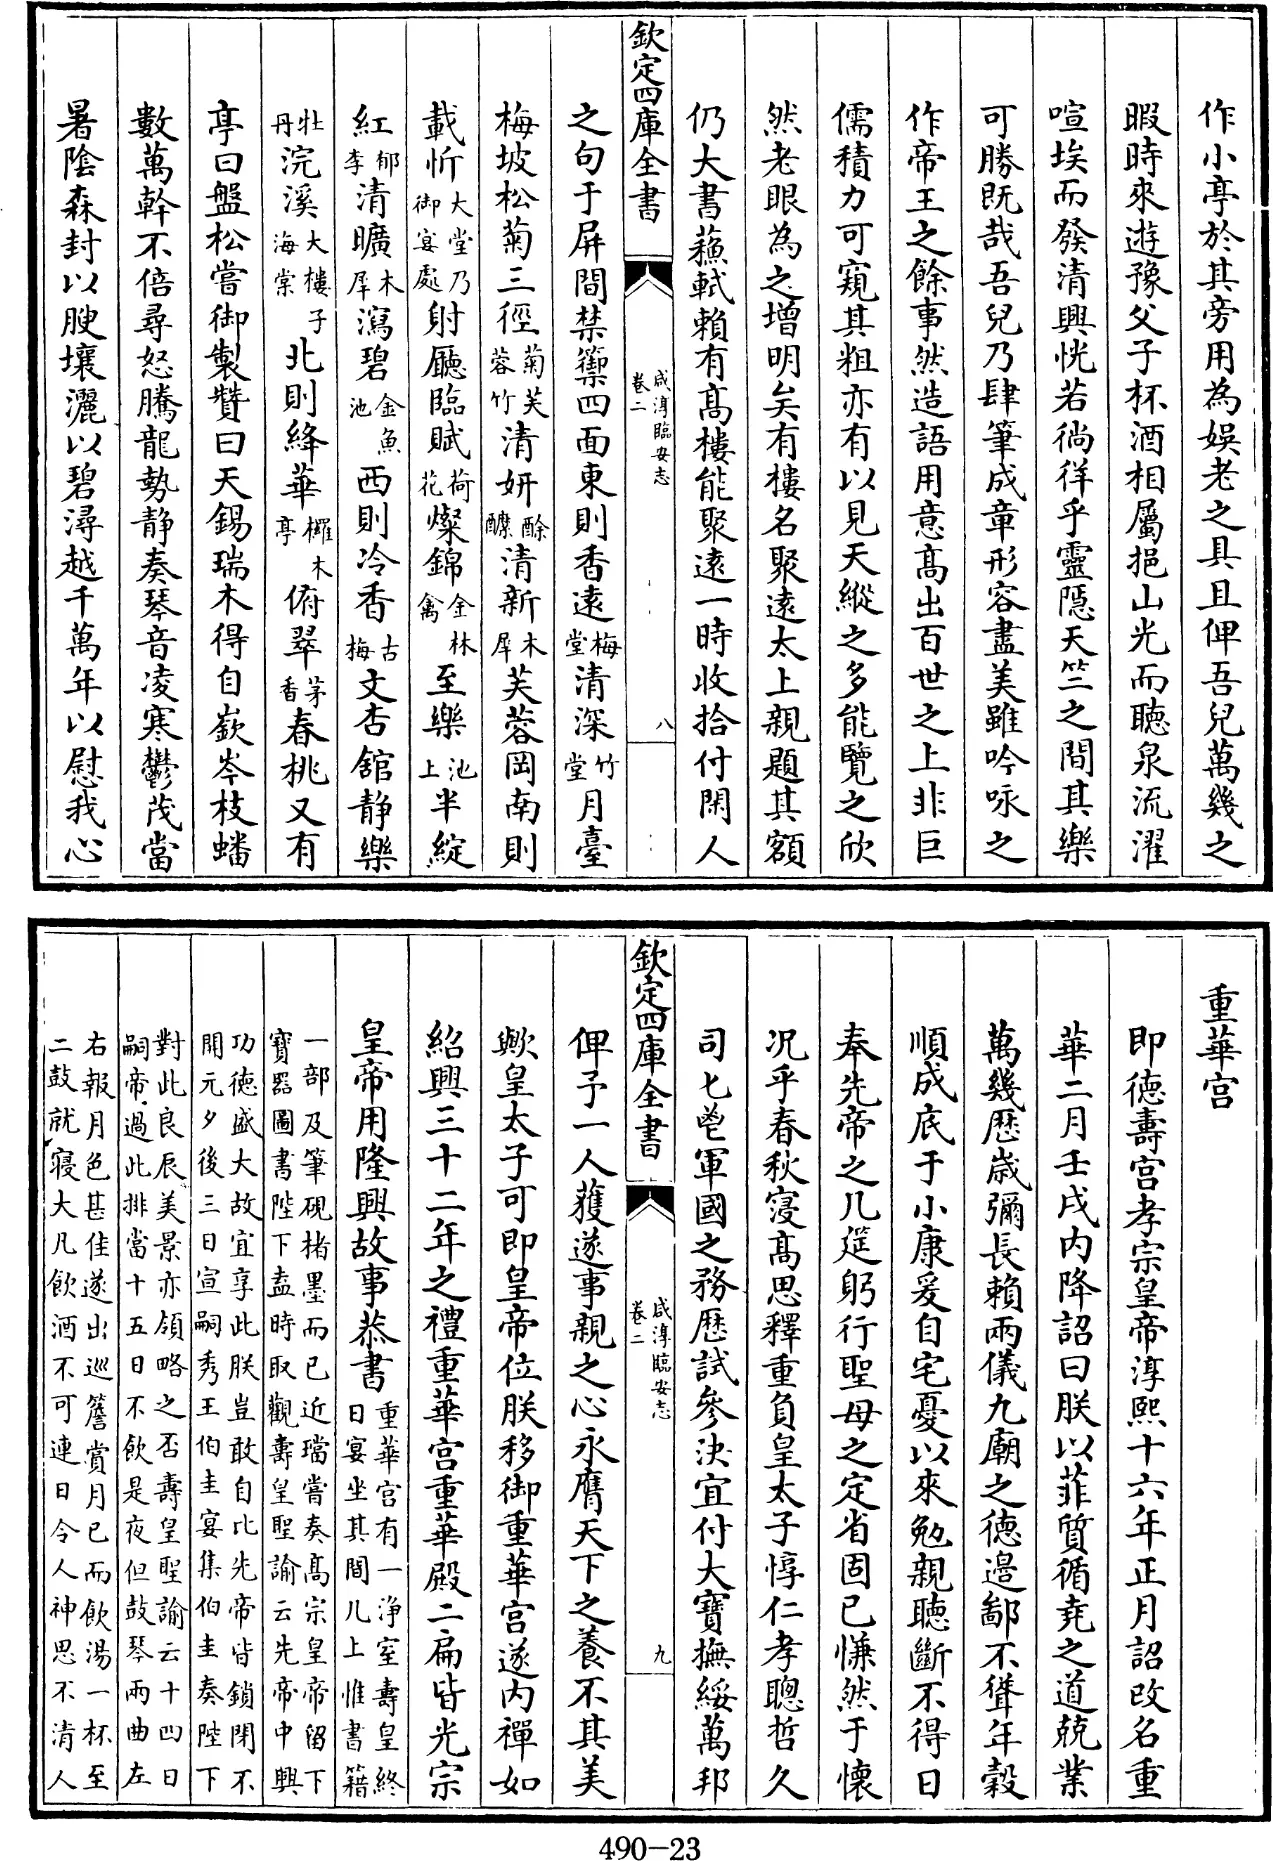 作小亭於其旁用為娯老之具且俾吾兒萬幾之
暇時來遊豫父子杯酒相屬挹山光而聽泉流濯
喧埃而發清興恍若徜徉乎靈隱天竺之間其樂
可勝旣哉吾兒乃肆筆成章形容盡美雖吟咏之
作帝王之餘事然造語用意髙出百世之上非巨
儒積力可窺其粗亦有以見天縱之多能覽之欣
然老眼為之增明矣有樓名聚遠太上親題其額
仍大書蘓軾賴有髙樓能聚遠一時收拾付閑人
欽定四庫全書
咸淳臨安志
卷二
八
之句于屏間禁籞四面東則香逺梅堂清深竹堂月臺
梅坡松菊三徑菊芙蓉竹清妍酴醿清新木犀芙蓉岡南則
載忻大堂乃御宴處射廳臨賦荷花燦錦金林禽至樂池上半綻
紅郁李清曠木犀瀉碧金魚池西則冷香古梅文杏館静樂
牡丹浣溪大樓子海棠北則絳華欏木亭俯翠茅香春桃又有
亭曰盤松嘗御製贊曰天錫瑞木得自嶔岑枝蟠
數萬幹不倍尋怒騰龍勢静奏琴音凌寒鬱茂當
暑陰森封以腴壤灑以碧潯越千萬年以慰我心
重華宫
即德壽宫孝宗皇帝淳熙十六年正月詔改名重
華二月壬戌内降詔曰朕以菲質循堯之道兢業
萬幾歴歳彌長賴兩儀九廟之德邉鄙不聳年穀
順成底于小康爰自宅憂以來勉親聽斷不得日
奉先帝之几筵躬行聖母之定省固已慊然于懷
况乎春秋寖髙思釋重負皇太子惇仁孝聰哲久
司匕鬯軍國之務歴試參決宜付大寶撫綏萬邦
欽定四庫全書
咸淳臨安志
卷二
九
俾予一人獲遂事親之心永膺天下之養不其美
歟皇太子可即皇帝位朕移御重華宫遂内禪如
紹興三十二年之禮重華宫重華殿二扁皆光宗
皇帝用隆興故事恭書重華宫有一浄室壽皇終
日宴坐其間几上惟書籍
一部及筆硯楮墨而已近璫嘗奏髙宗皇帝留下
寶器圖書陛下盍時取觀壽皇聖諭云先帝中興
功德盛大故宜享此朕豈敢自比先帝皆鎖閉不
開元夕後三日宣嗣秀王伯圭宴集伯圭奏陛下
對此良辰美景亦領略之否壽皇聖諭云十四日
嗣帝過此排當十五日不飲是夜但鼓琴兩曲左
右報月色甚佳遂出巡簷賞月已而飲湯一杯至
二鼓就寢大凡飲酒不可連日令人神思不清人
490-23